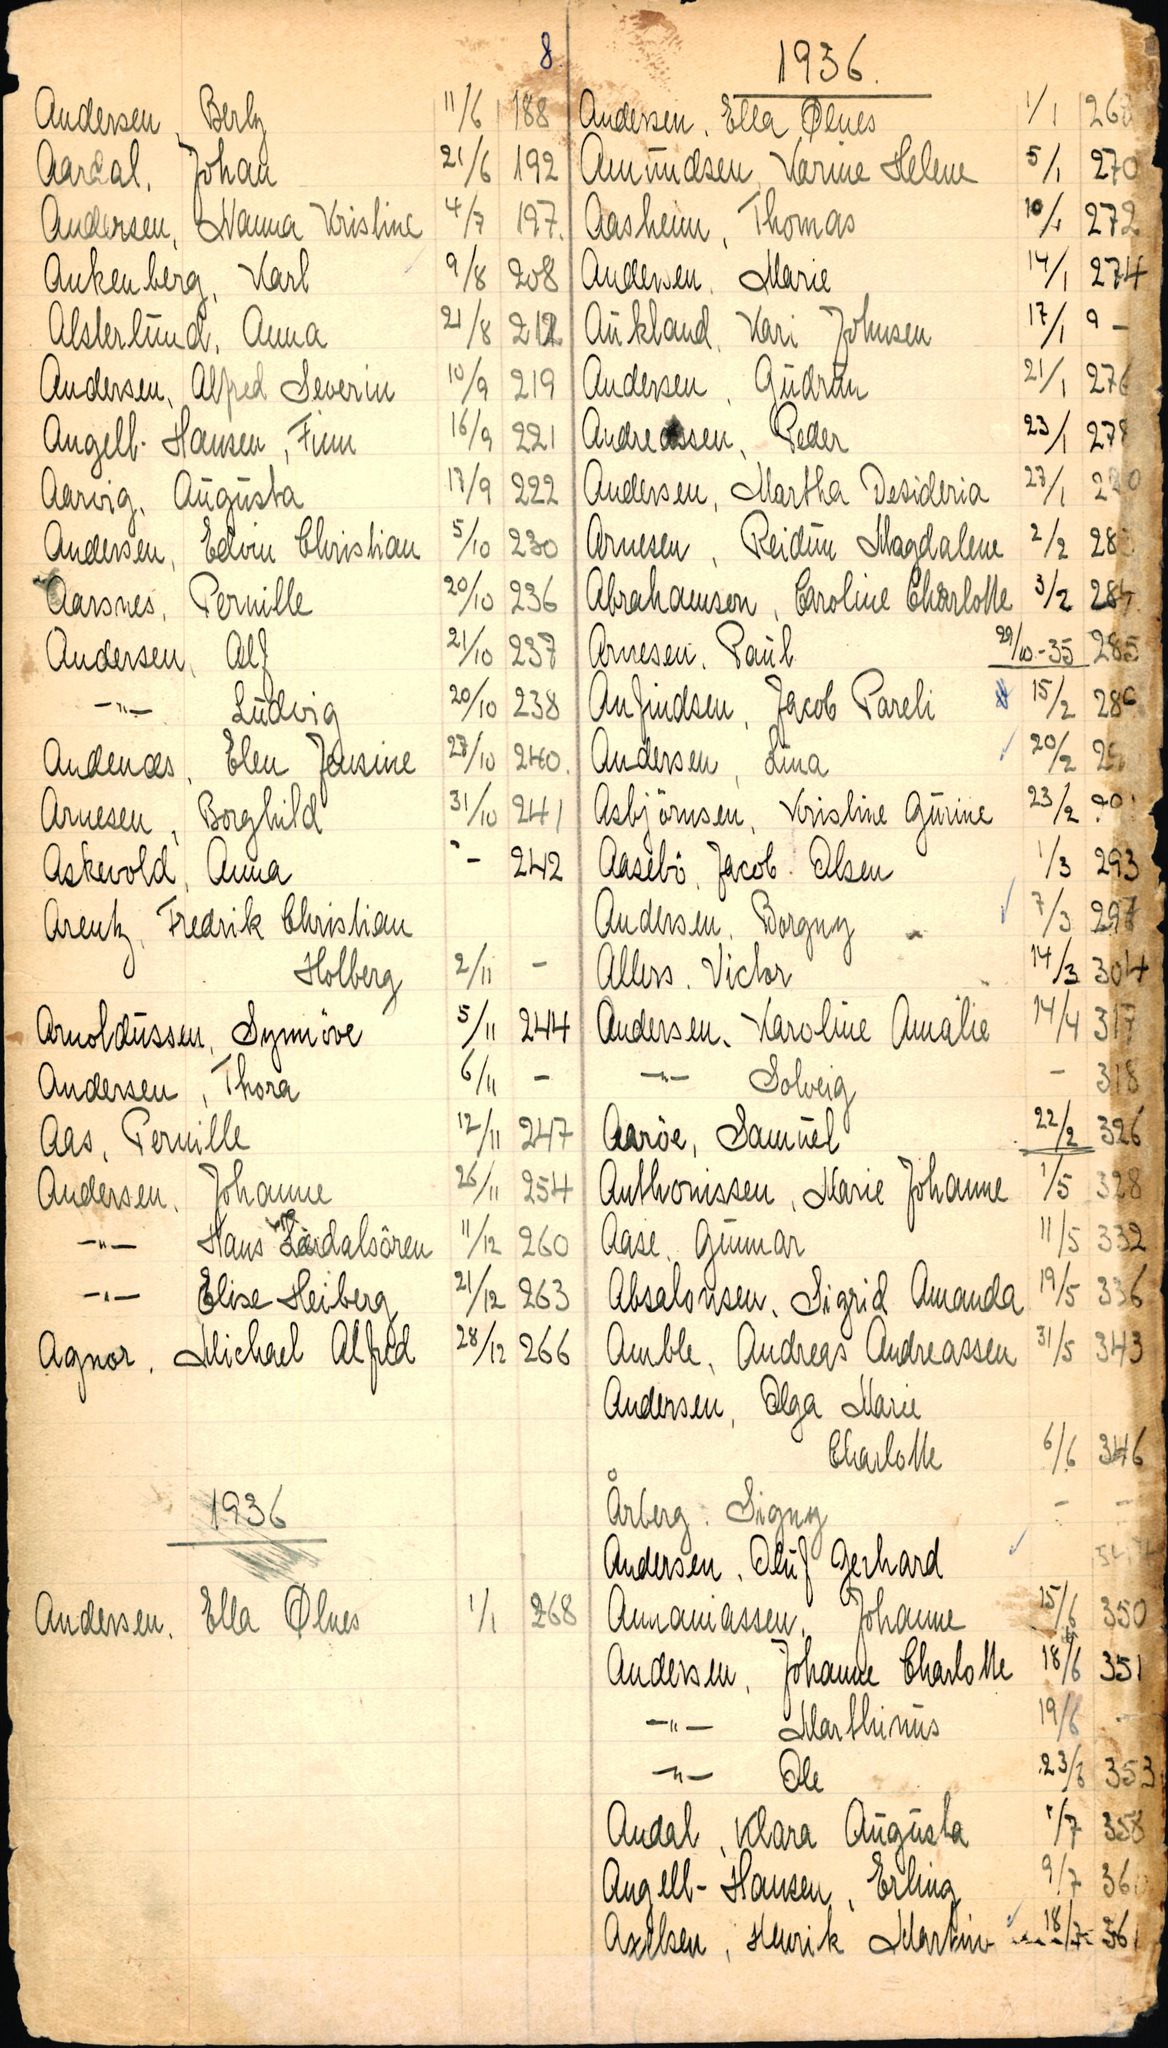 8.
Andersen, Berly 11/6 188
Aardal, Johan 21/6 192
Andersen, Nanna Kristine 4/7 197.
Ankenberg, Karl 9/8 208
Alsterlund, Anna 21/8 212
Andersen, Alfred Severin 10/9 219
Angell-Hansen, Finn 16/9 221
Aarvig, Augusta 17/9 222
Andersen, Edvin Christian 5/10 230
Aarsnes, Pernille 20/10 236
Andersen, Alf 21/10 237
-"- Ludvig 20/10 238
Andenæs, Elen Jensine 27/10 240.
Arnesen, Borghild 31/10 241
Askevold, Anna "- 242
Arentz, Fredrik Christian
Holberg 2/11 -
Arnoldussen, Synnöve 5/11 244
Andersen, Thora 6/11 -
Aas, Pernille 12/11 247
Andersen, Johanne 26/11 254
-"- Hans Lærdalsören 11/12 260
-"- Elise Heiberg 21/12 263
Agnor, Michael Alfred 28/12 266
1936
Andersen, Ella Ølnes 1/1 268
1936.
Andersen, Ella Ølnes 1/1 268
Amundsen, Karine Helene 5/1 270
Aasheim, Thomas 10/1 272
Andersen, Marie 14/1 274
Aukland, Kari Johnsen 17/1 " -
Andersen, Gudrun 21/1 276
Andreassen, Peder 23/1 278
Andersen, Martha Desideria 27/1 280
Arnesen, Reidun Magdalene 2/2
Abrahamsen, Caroline Charlotte 3/2 284
Arnesen, Paul 29/10-35 285
Anfindsen, Jacob Pareli 15/2 286
Andersen, Lina 20/2
Asbjörnsen, Kristine Gurine 23/2
Aasebö, Jacob Olsen 1/3 293
Andersen, Borgny 7/3 297
Allers, Victor 14/3 304
Andersen, Karoline Amalie 14/4 317
-"- Solveig - 318
Aaröe, Samuel 22/2 326
Anthonissen, Marie Johanne 1/5 328
Aase, Gunnar 11/5 332
Absalonsen, Sigrid Amanda 19/5 336
Amble, Andreas Andreassen 31/5 343
Andersen, Olga Marie
Charlotte 6/6 346
Årberg, Signy - -
Andersen, Oluf Gerhard
Annaniassen, Johanne 15/6 350
Andersen, Johanne Charlotte 18/6 351
-"- Marthinus 19/6 -
-"- Ole 23/6 353
Andal, Klara Augusta 1/7 358
Angell-Hansen, Erling 9/7 360
Axelsen, Henrik Martin 18/7 361